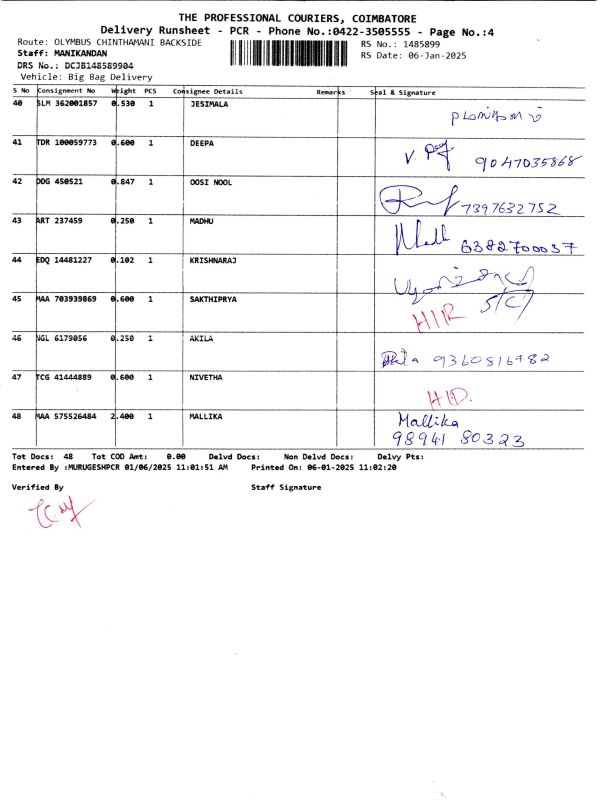 THE PROFESSIONAL COURIERS, COIMBATORE
Delivery Runsheet - PCR - Phone No.:0422-3505555 - Page No.:4
Route: OLYMBUS CHINTHAMANI BACKSIDE RS No.: 1485899
Staff: MANIKANDAN RS Date: 06-Jan-2025
DRS No.: DCJB148589904
Vehicle: Big Bag Delivery
S No Consignment No Weight PCS Consignee Details Remarks Seal & Signature
40 SLM 362001857 0.530 1 JESIMALA
41 TDR 100059773 0.600 1 DEEPA
9047035868
42 DDG 450521 0.847 1 OOSI NOOL
7397632752
43 ART 237459 0.250 1 MADHU
6382700037
44 EDQ 14481227 0.102 1 KRISHNARAJ
45 MAA 703939869 0.600 1 SAKTHIPRYA
46 NGL 6179056 0.250 1 AKILA
9360516782
47 TCG 41444889 0.600 1 NIVETHA
48 MAA 575526484 2.400 1 MALLIKA Mallika
98941 80323
Tot Docs: 48 Tot COD Amt: 0.00 Delvd Docs: Non Delvd Docs: Delvy Pts:
Entered By :MURUGESHPCR 01/06/2025 11:01:51 AM Printed On: 06-01-2025 11:02:20
Verified By Staff Signature